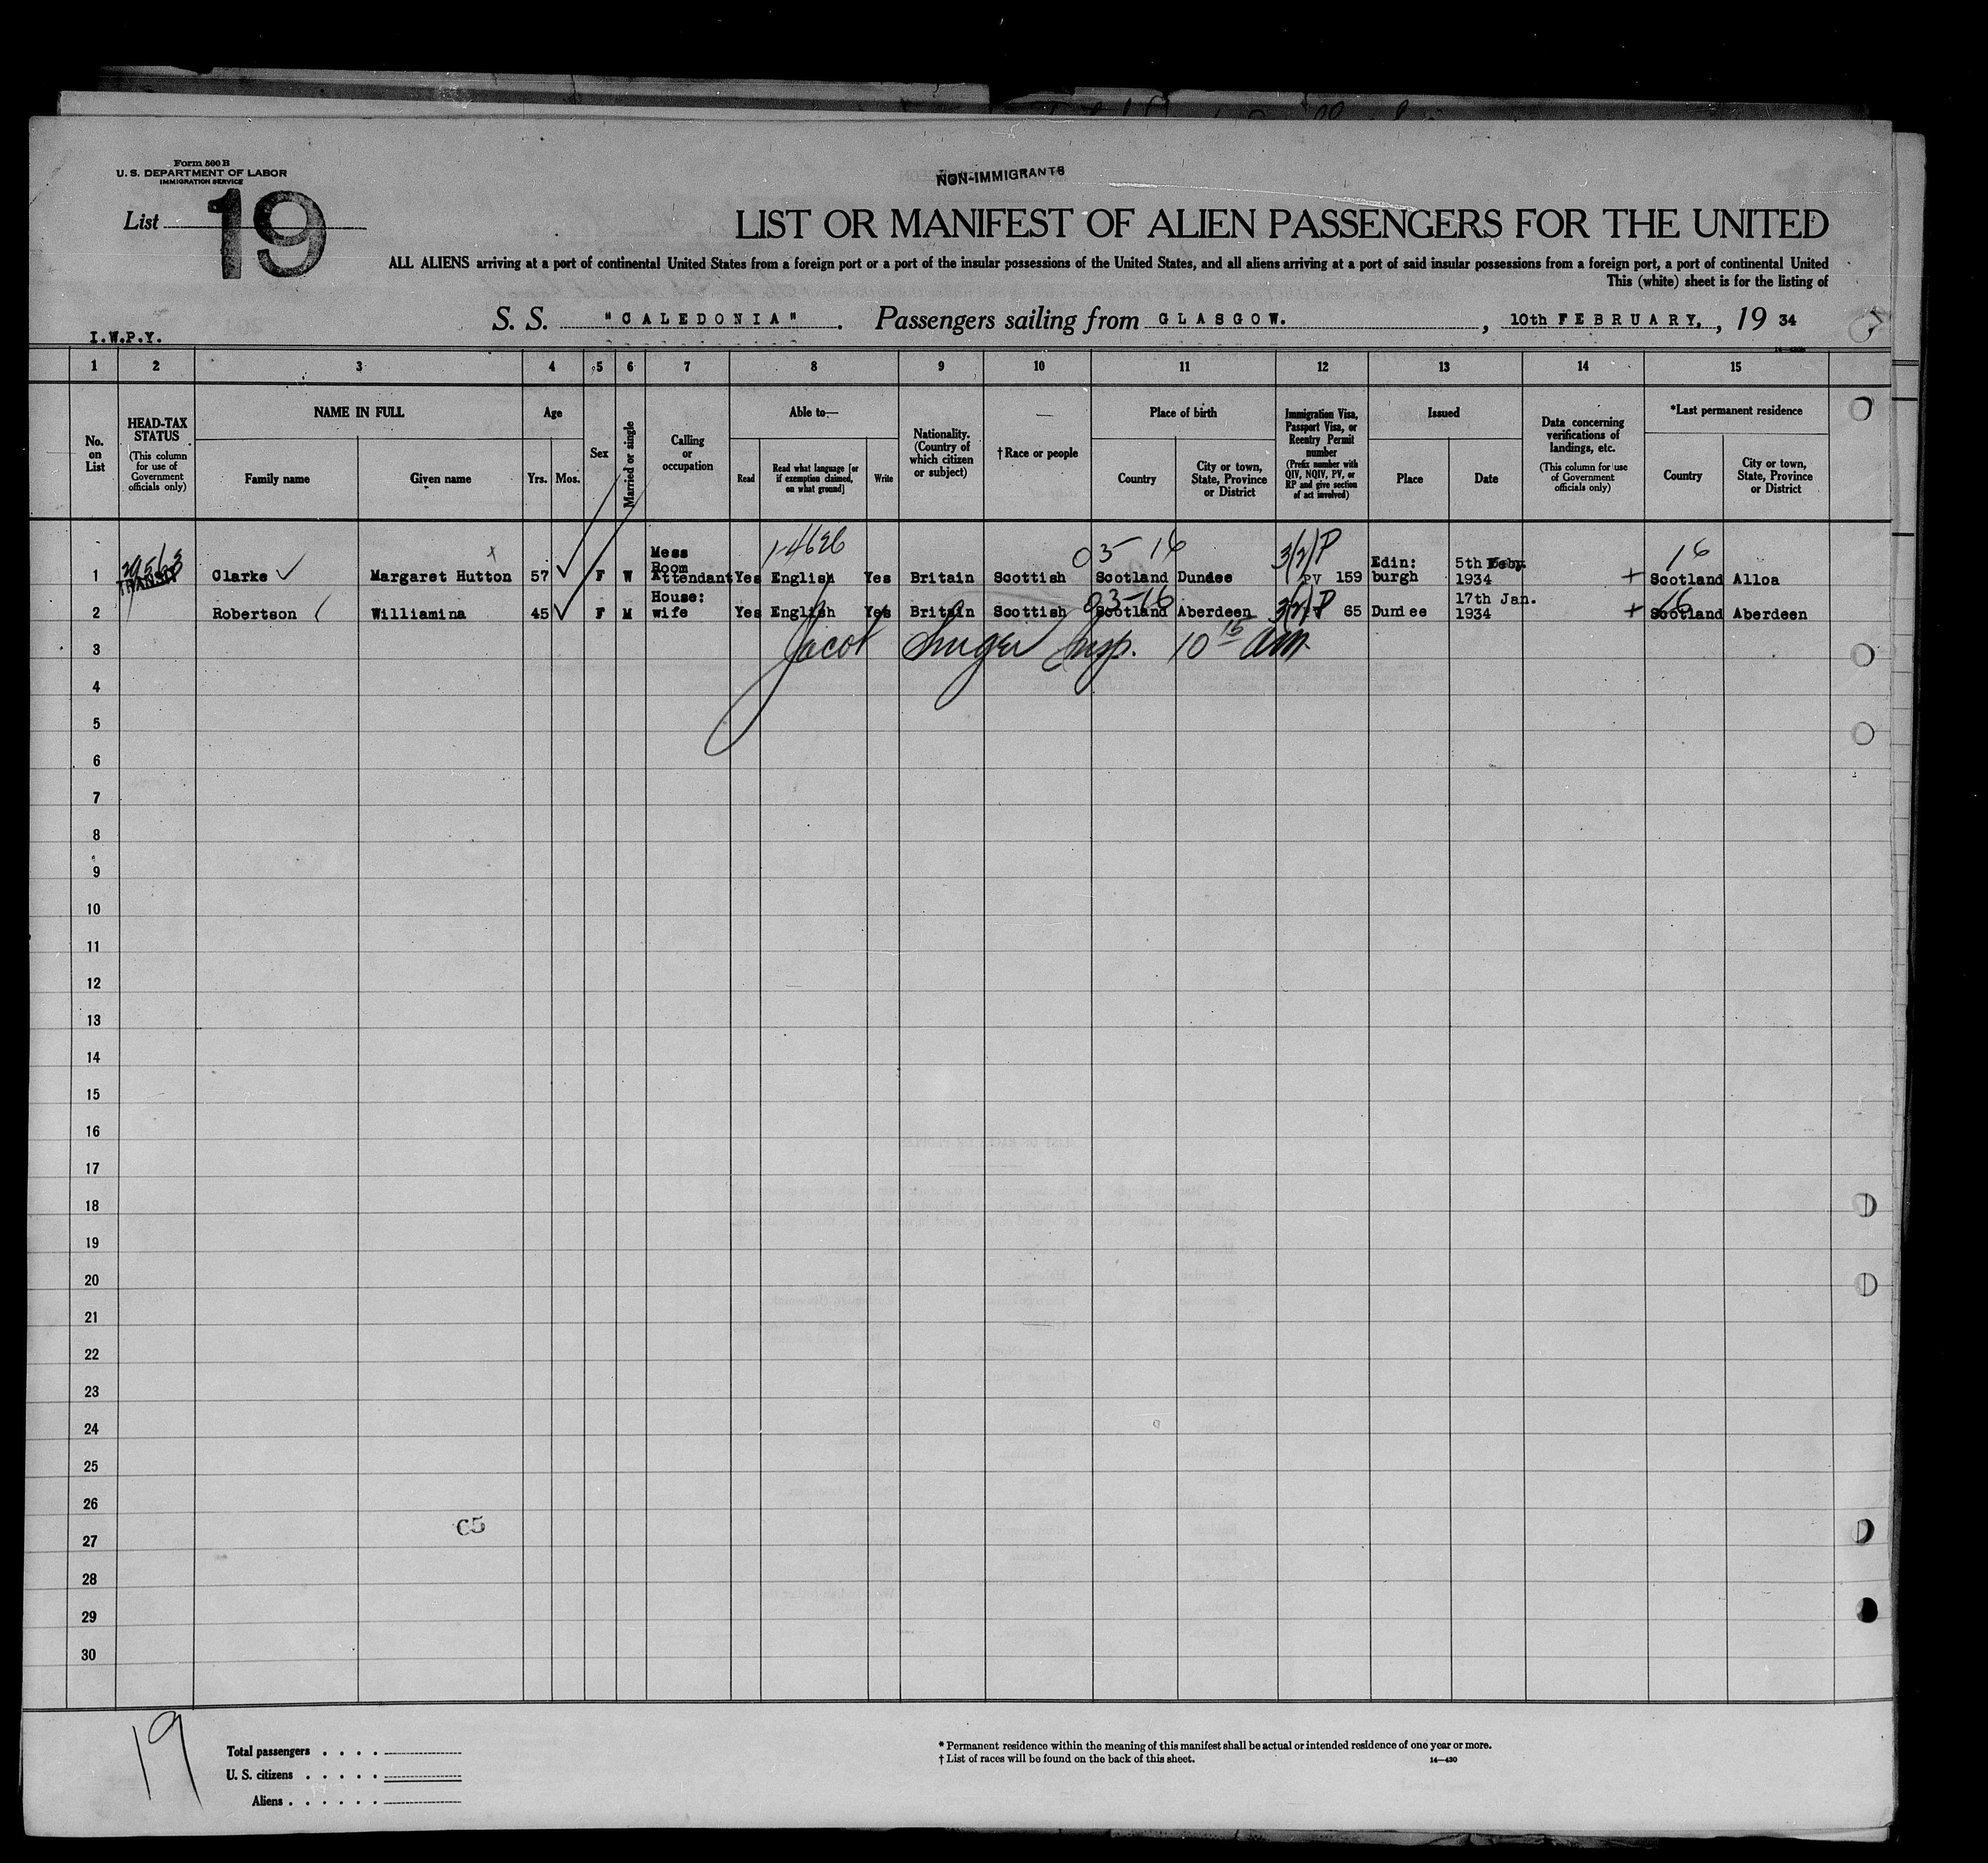 Form 500 B
U. S. DEPARTMENT OF LABOR
IMMIGRATION SERVICE
NON-IMMIGRANTS
List 19
LIST OR MANIFEST OF ALIEN PASSENGERS FOR THE UNITED
ALL ALIENS arriving at a port of continental United States from a foreign port or a port of the insular possessions of the United States, and all aliens arriving at a port of said insular possessions from a foreign port, a port of continental United
This (white) sheet is for the listing of
S. S. "CALEDONIA" . Passengers sailing from GLASGOW. , 10th FEBRUARY, , 19 34
I.W.P.Y.
1 2 3 4 5 6 7 8 9 10 11 12 13 14 15
No. on List
HEAD-TAX STATUS (This column for use of Government officials only)
NAME IN FULL
Family name Given name
Age
Yrs. Mos.
Sex
Married or single
Calling or occupation
Able to—
Read Read what language [or if exemption claimed, on what ground] Write
Nationality. (Country of which citizen or subject)
† Race or people
Place of birth
Country City or town, State, Province or District
Immigration Visa, Passport Visa, or Reentry Permit number (Prefix number with QIV, NQIV, PV, or RP and give section of act involved)
Issued
Place Date
Data concerning verifications of landings, etc. (This column for use of Government officials only)
*Last permanent residence
Country City or town, State, Province or District
1-4626 03-16 3/2/P 16
1 TRANSIT Clarke Margaret Hutton 57 F W Mess Room Attendant Yes English Yes Britain Scottish Scotland Dundee PV 159 Edin: burgh 5th Feby. 1934 Scotland Alloa
03-16 3/2/P 16
2 Robertson Williamina 45 F M House: wife Yes English Yes Britain Scottish Scotland Aberdeen 65 Dundee 17th Jan. 1934 Scotland Aberdeen
3 Jacob Insp. 10 15 am
4
5
6
7
8
9
10
11
12
13
14
15
16
17
18
19
20
21
22
23
24
25
26
C5
27
28
29
30
19
Total passengers . . . .
U. S. citizens . . . . .
Aliens . . . . . .
* Permanent residence within the meaning of this manifest shall be actual or intended residence of one year or more.
† List of races will be found on the back of this sheet. 14—430